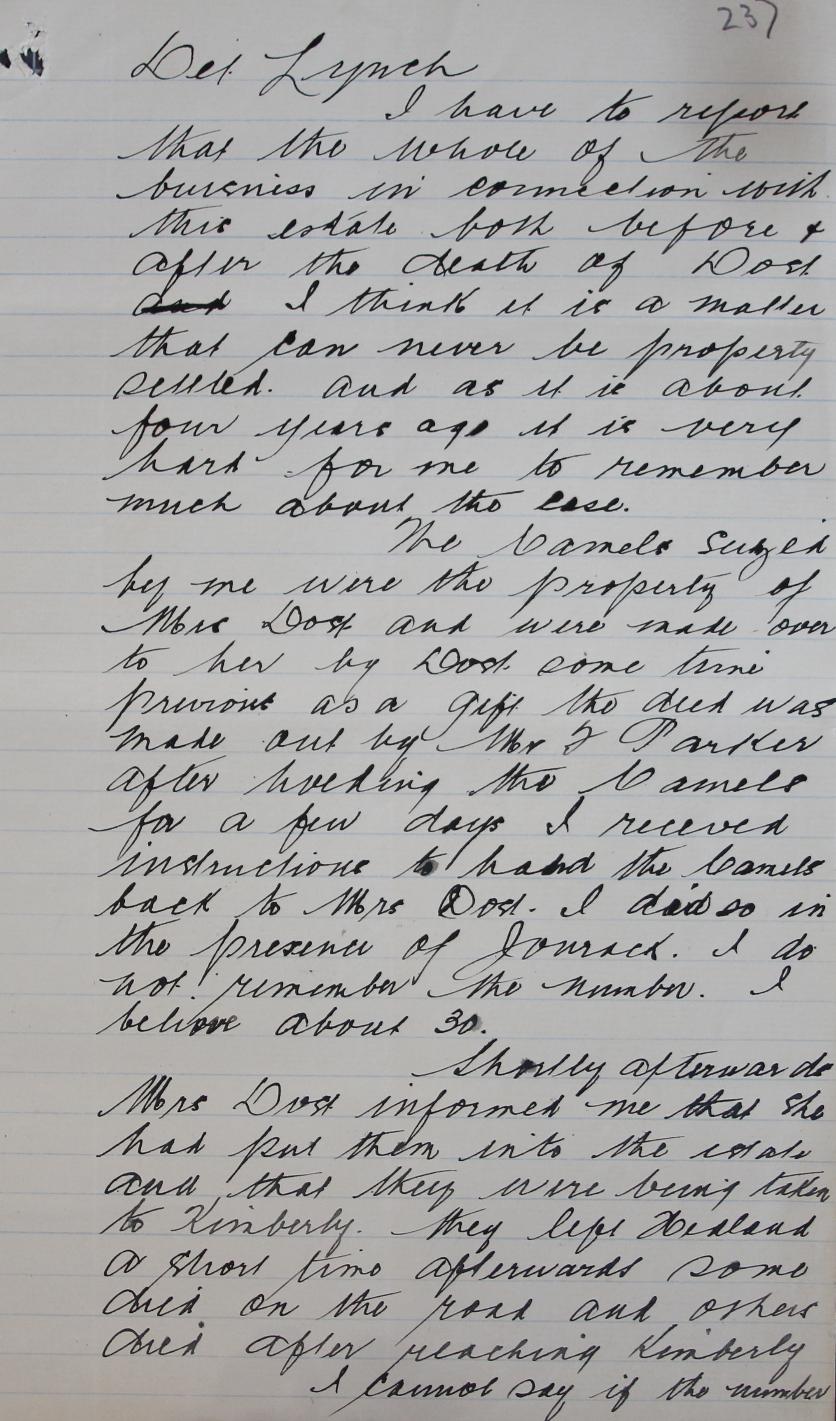 237
Det Lynch
I have to report
that the whole of the
buisniss in connection with
this estate both before &
after the death of Dost
and I think it is a matter
that can never be property
settled. and as it is about
four years ago it is very
hard for me to remember
much about the case.
The Camels seized
by me were the property of
Mrs Dost and were made over
to her by Dost some time
previous as a gift the deed was
made out by Mr F Parker
after holding the Camels
for a few days I receved
instructions to hand the Camels
back to Mrs Dost. I did so in
the presence of Jourack. I do
not remember the number. I
believe about 30.
Shortly afterwards
Mrs Dost informed me that she
had put them into the estate
and that they were being taken
to Kimberly. they left Hedland
a short time afterwards some
died on the road and others
died after reaching Kimberly
I cannot say if the number